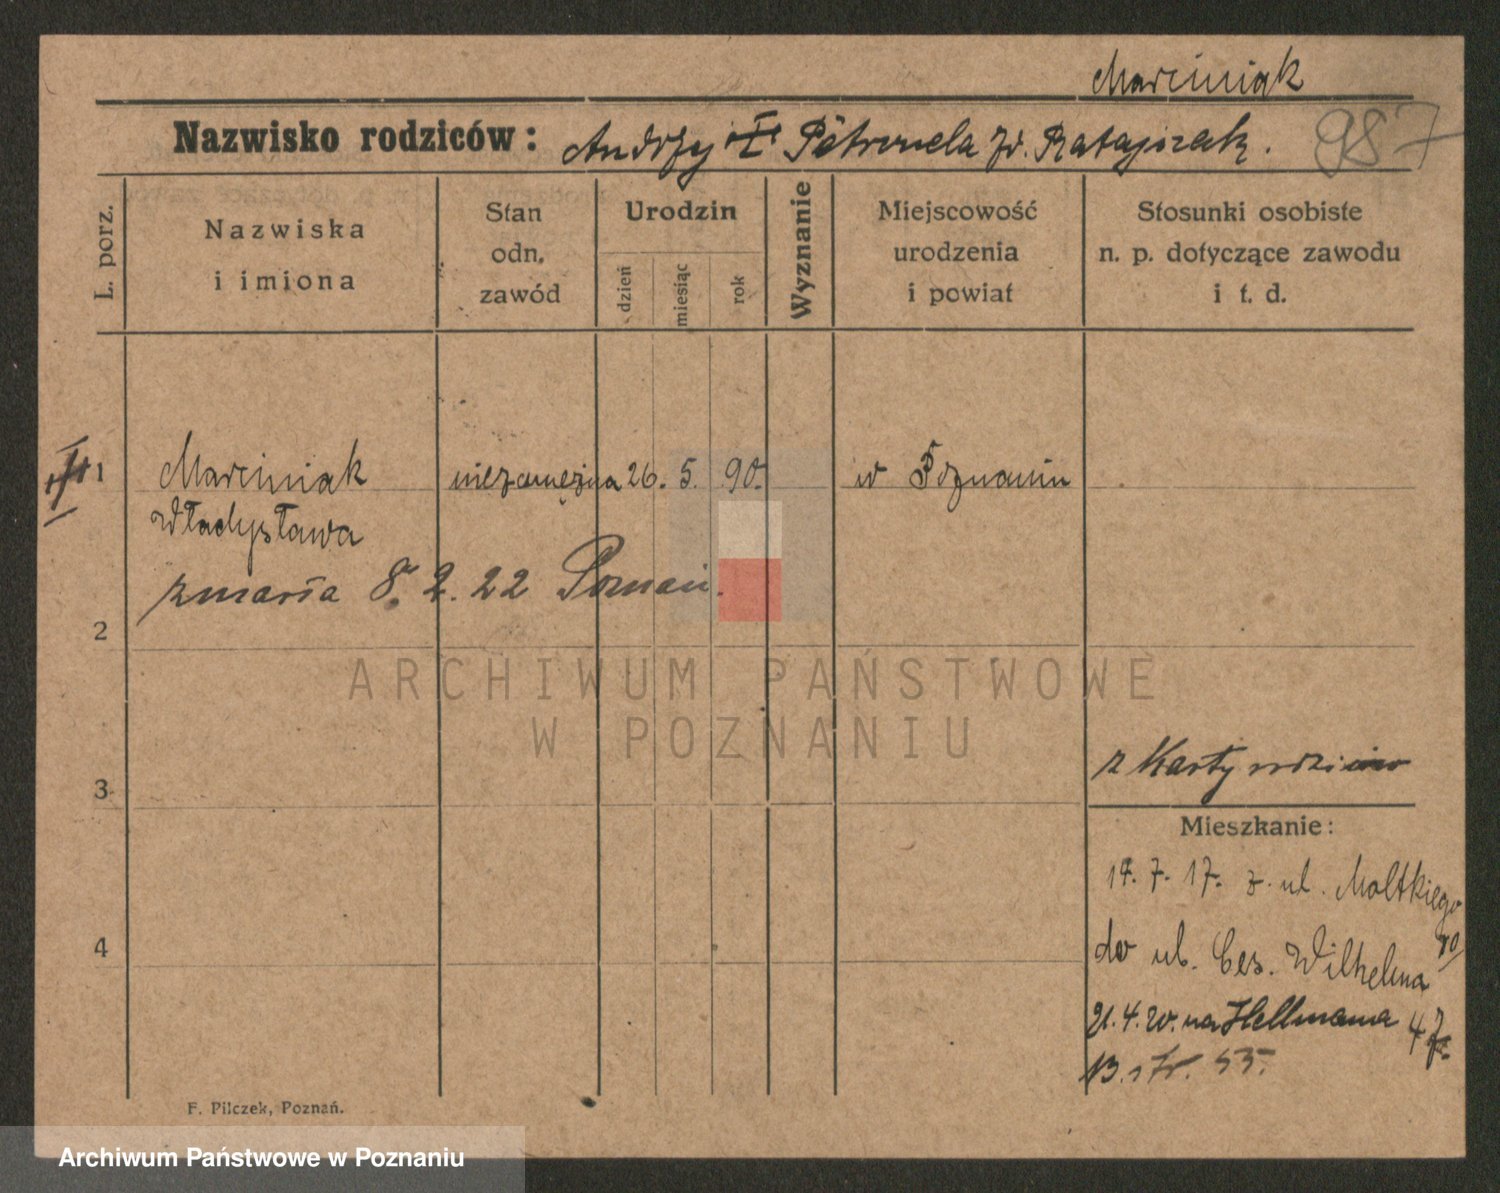 Marciniak
Nazwisko rodziców: Andrzej Petronela zd. Ratajczak. 987
L. porz.
Nazwiska
i imiona
Stan
odn.
zawód
Urodzin
dzień
miesiąc
rok
Wyznanie
Miejscowość
urodzenia
i powiat
Stosunki osobiste
n. p. dotyczące zawodu
i t. d.
1 Marciniak niezamężna 26. 5. 90. w Poznaniu
Władysława
zmarła 8. 2. 22 Poznań.
2
ARCHIWUM PAŃSTWOWE
W POZNANIU
z Karty
3
Mieszkanie:
14. 7. 17. z. ul. Moltkiego
10
do ul. Ces. Wilhelma
21. 4. 20. na Hellmana 47
13. 53.
4
F. Pilczek, Poznań.
Archiwum Państwowe w Poznaniu